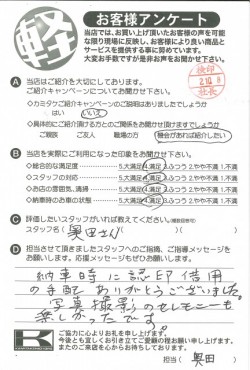 軽
お客様アンケート
当店では、お買い上げ頂いたお客様の声を可能
な限り現場に反映し、お客様により良い商品と
サービスを提供する事に努めています。
大変お手数ですが是非お声をお聞かせ下さい。
検印
社長
A 当店はご紹介を大切にしております。
ご紹介キャンペーンについてお聞かせ下さい。
◇カミタケご紹介キャンペーンのご説明はありましたでしょうか
はい いいえ
◇具体的にご紹介頂ける方とのご関係をお聞かせ頂けますでしょうか
ご親族 ご友人 職場の方 機会があれば紹介したい
B 当店を実際にご利用になった印象をお聞かせ下さい。
◇総合的な満足度 5.大満足 4.満足 3.ふつう 2.やや不満 1.不満
◇スタッフの対応 5.大満足 4.満足 3.ふつう 2.やや不満 1.不満
◇お店の雰囲気、清掃 5.大満足 4.満足 3.ふつう 2.やや不満 1.不満
◇納車時のお車の状態 5.大満足 4.満足 3.ふつう 2.やや不満 1.不満
C 評価したいスタッフがいれば教えてください。(複数回答可)
スタッフ名( 奥田さん )
D 担当させて頂きましたスタッフへのご指摘、ご指導メッセージを
お願いします。応援メッセージもぜひお願いします。
納車時に認印借用
の手配ありがとうございました。
写真撮影のセレモニーも
楽しかったです。
ご協力に心よりお礼を申し上げます。
今後とも宜しくお引き立てご愛顧の程お願い申し上げます。
またのご来店を心からお待ちしております。
担当( 奥田 )